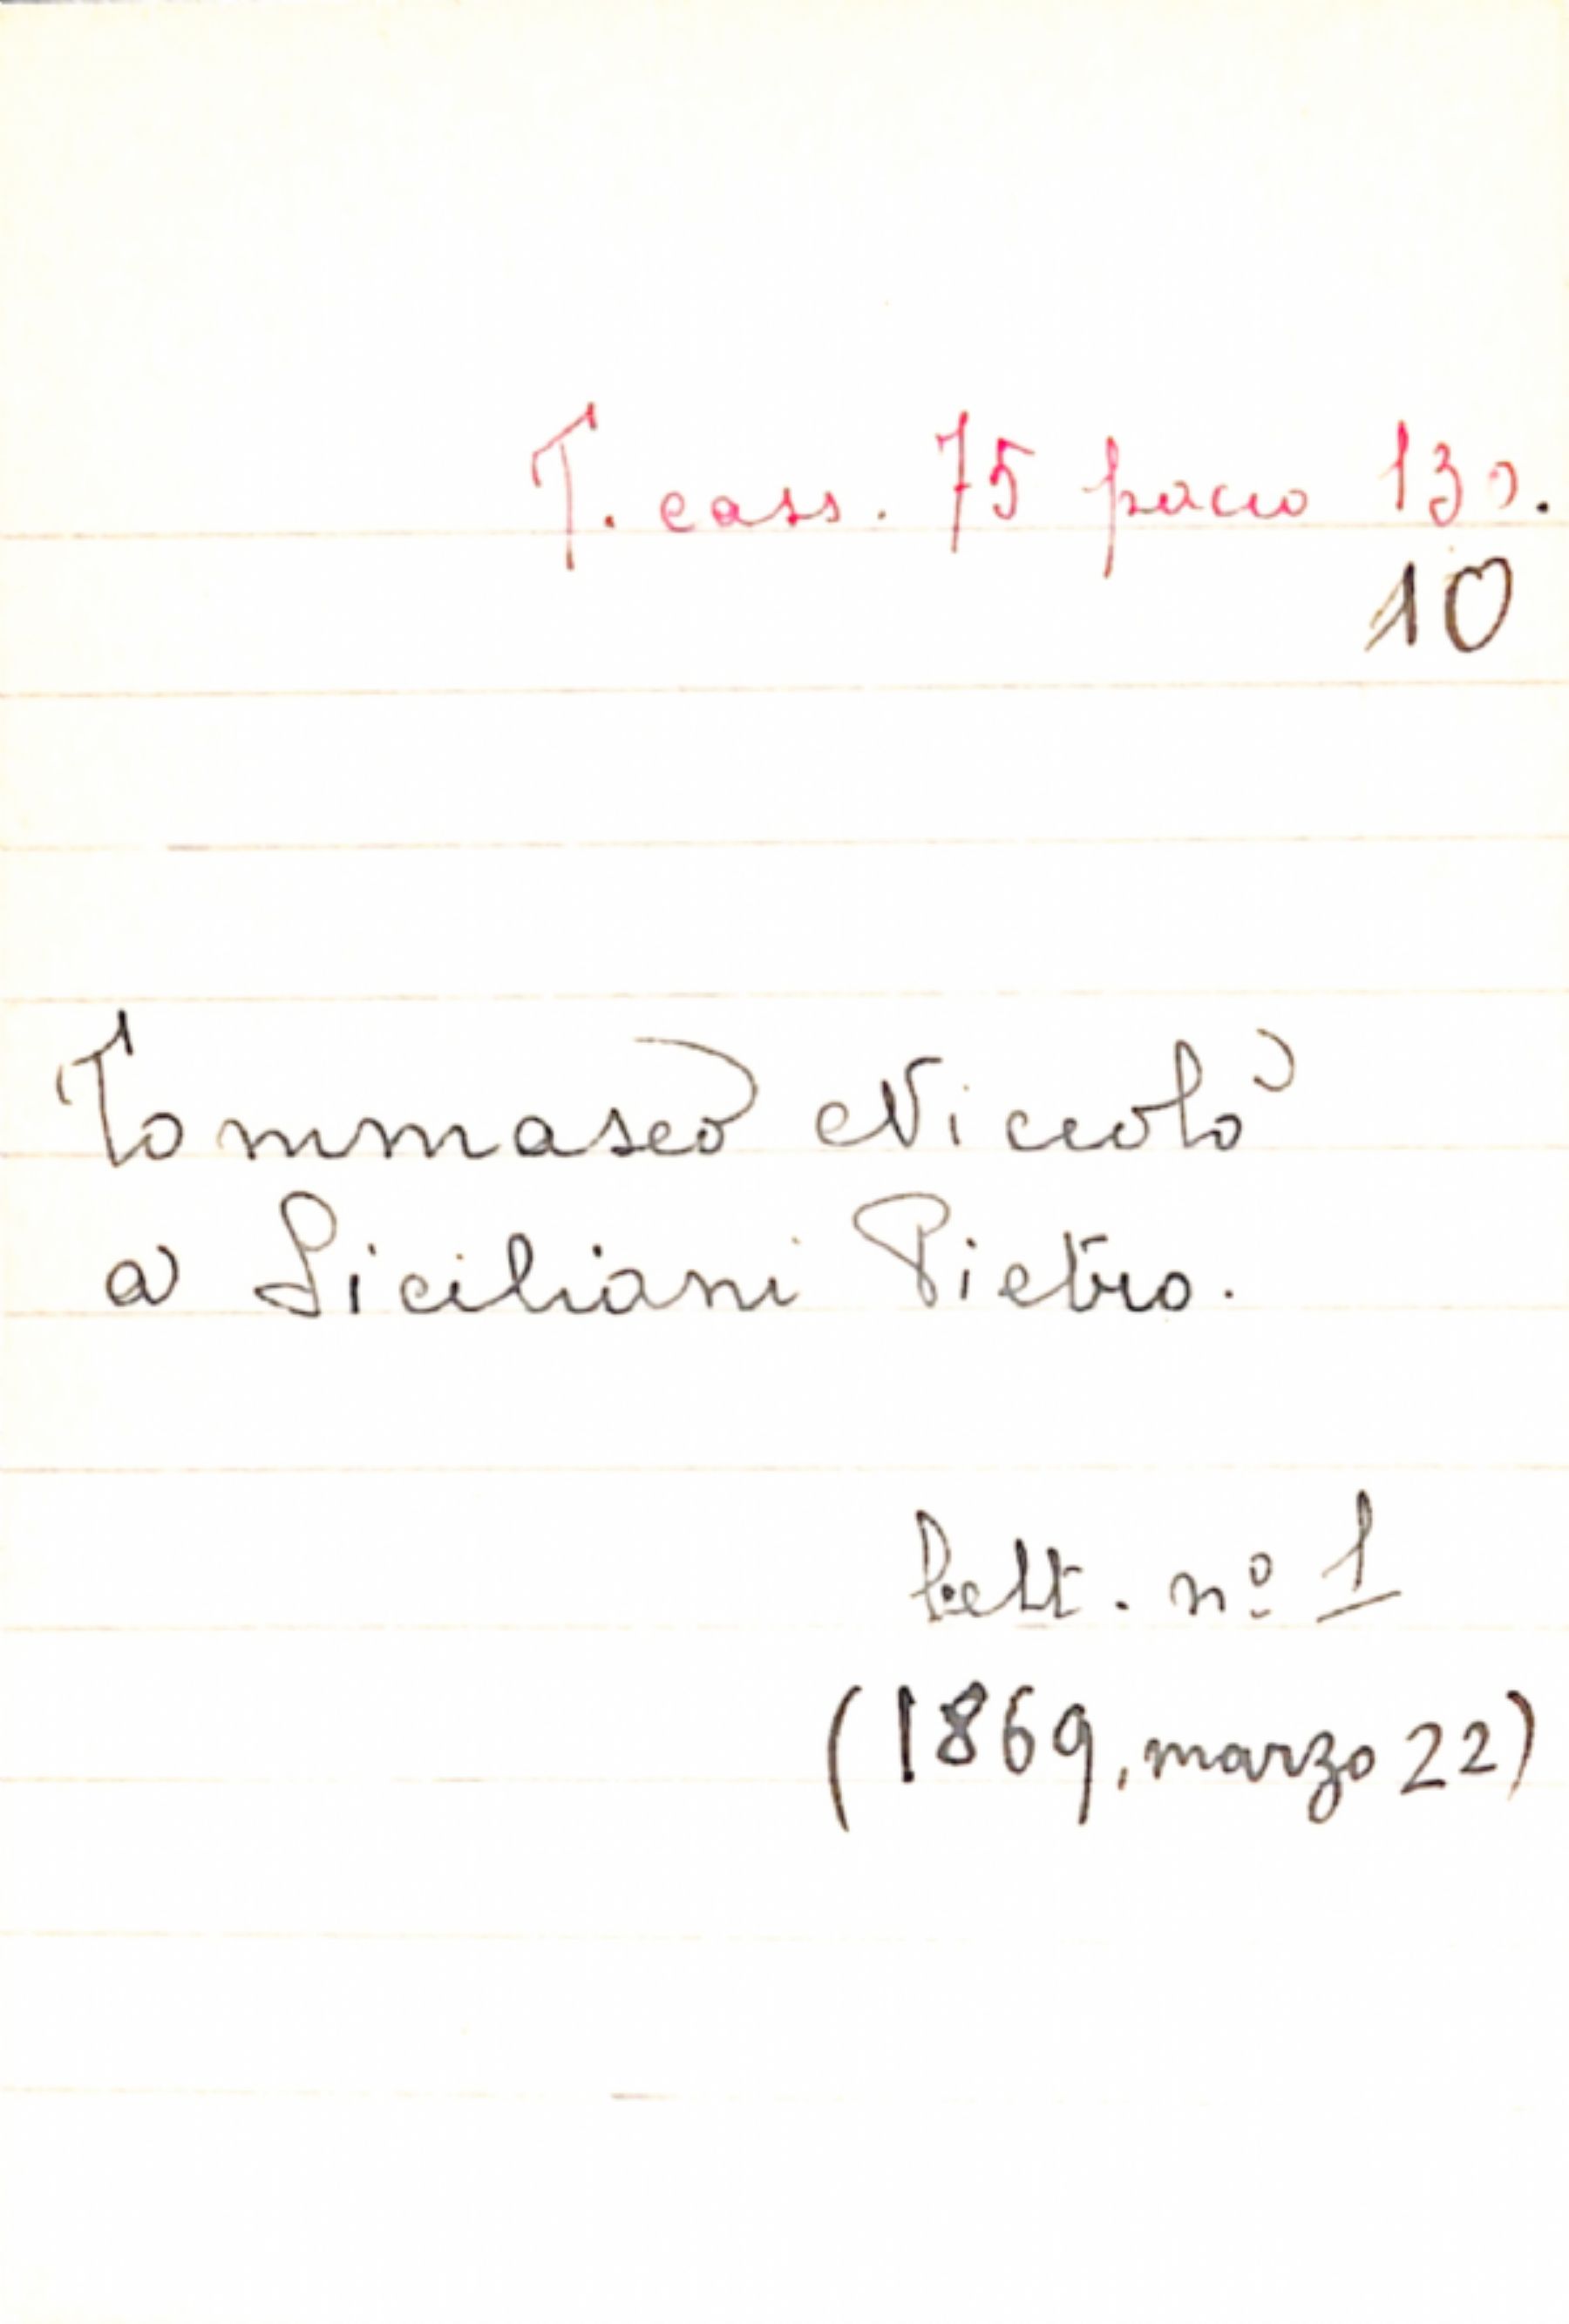 T. cass. 75 pacco 130.
10
Tommaseo Niccolò
a Siciliani Pietro.
lett. nº 1
(1869, marzo 22)